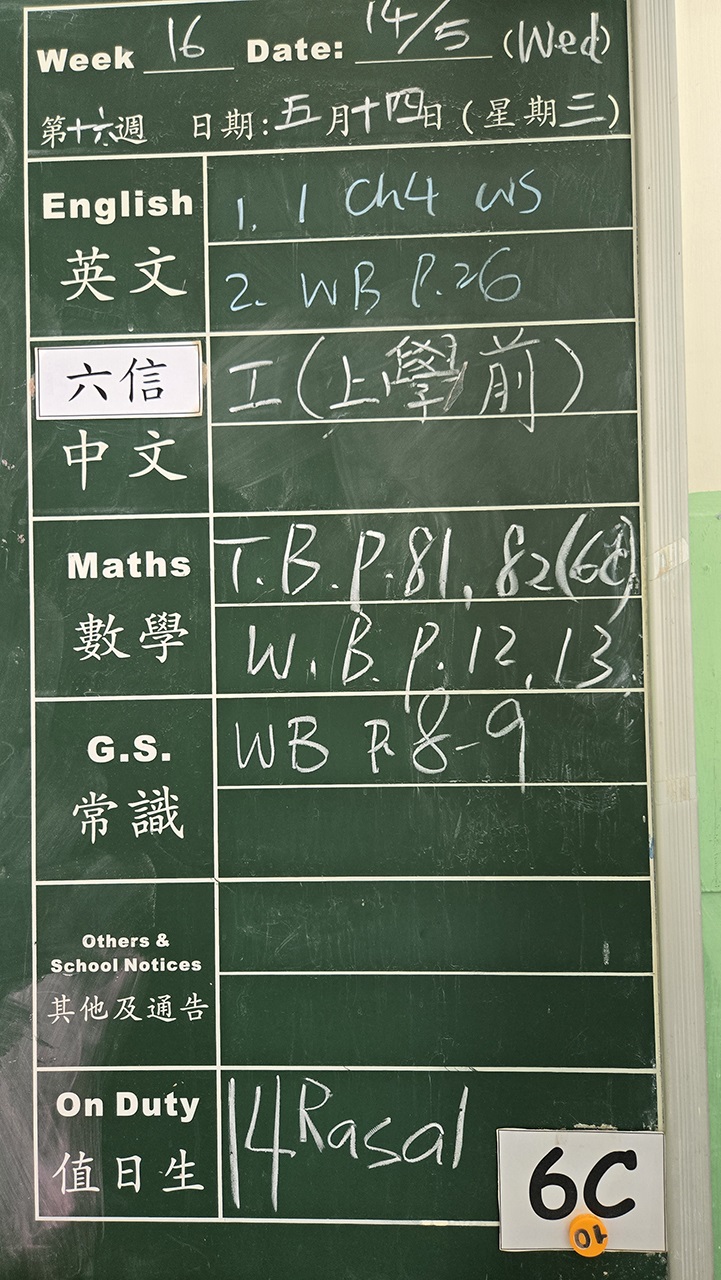 Week 16 Date: 14/5 (Wed)
第十六週 日期:五月十四日(星期三)
English
英文
1. 1 Ch4 WS
2. WB P.26
六信
中文
工(上學前)
Maths
數學
T.B.P.81, 82(6C)
W.B.P.12,13.
G.S.
常識
WB P.8-9
Others &
School Notices
其他及通告
On Duty
值日生
14 Rasal
6C